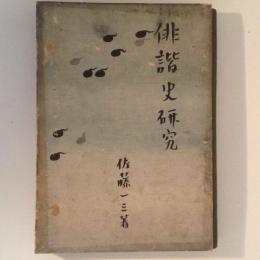 俳諧史研究
佐藤一三著